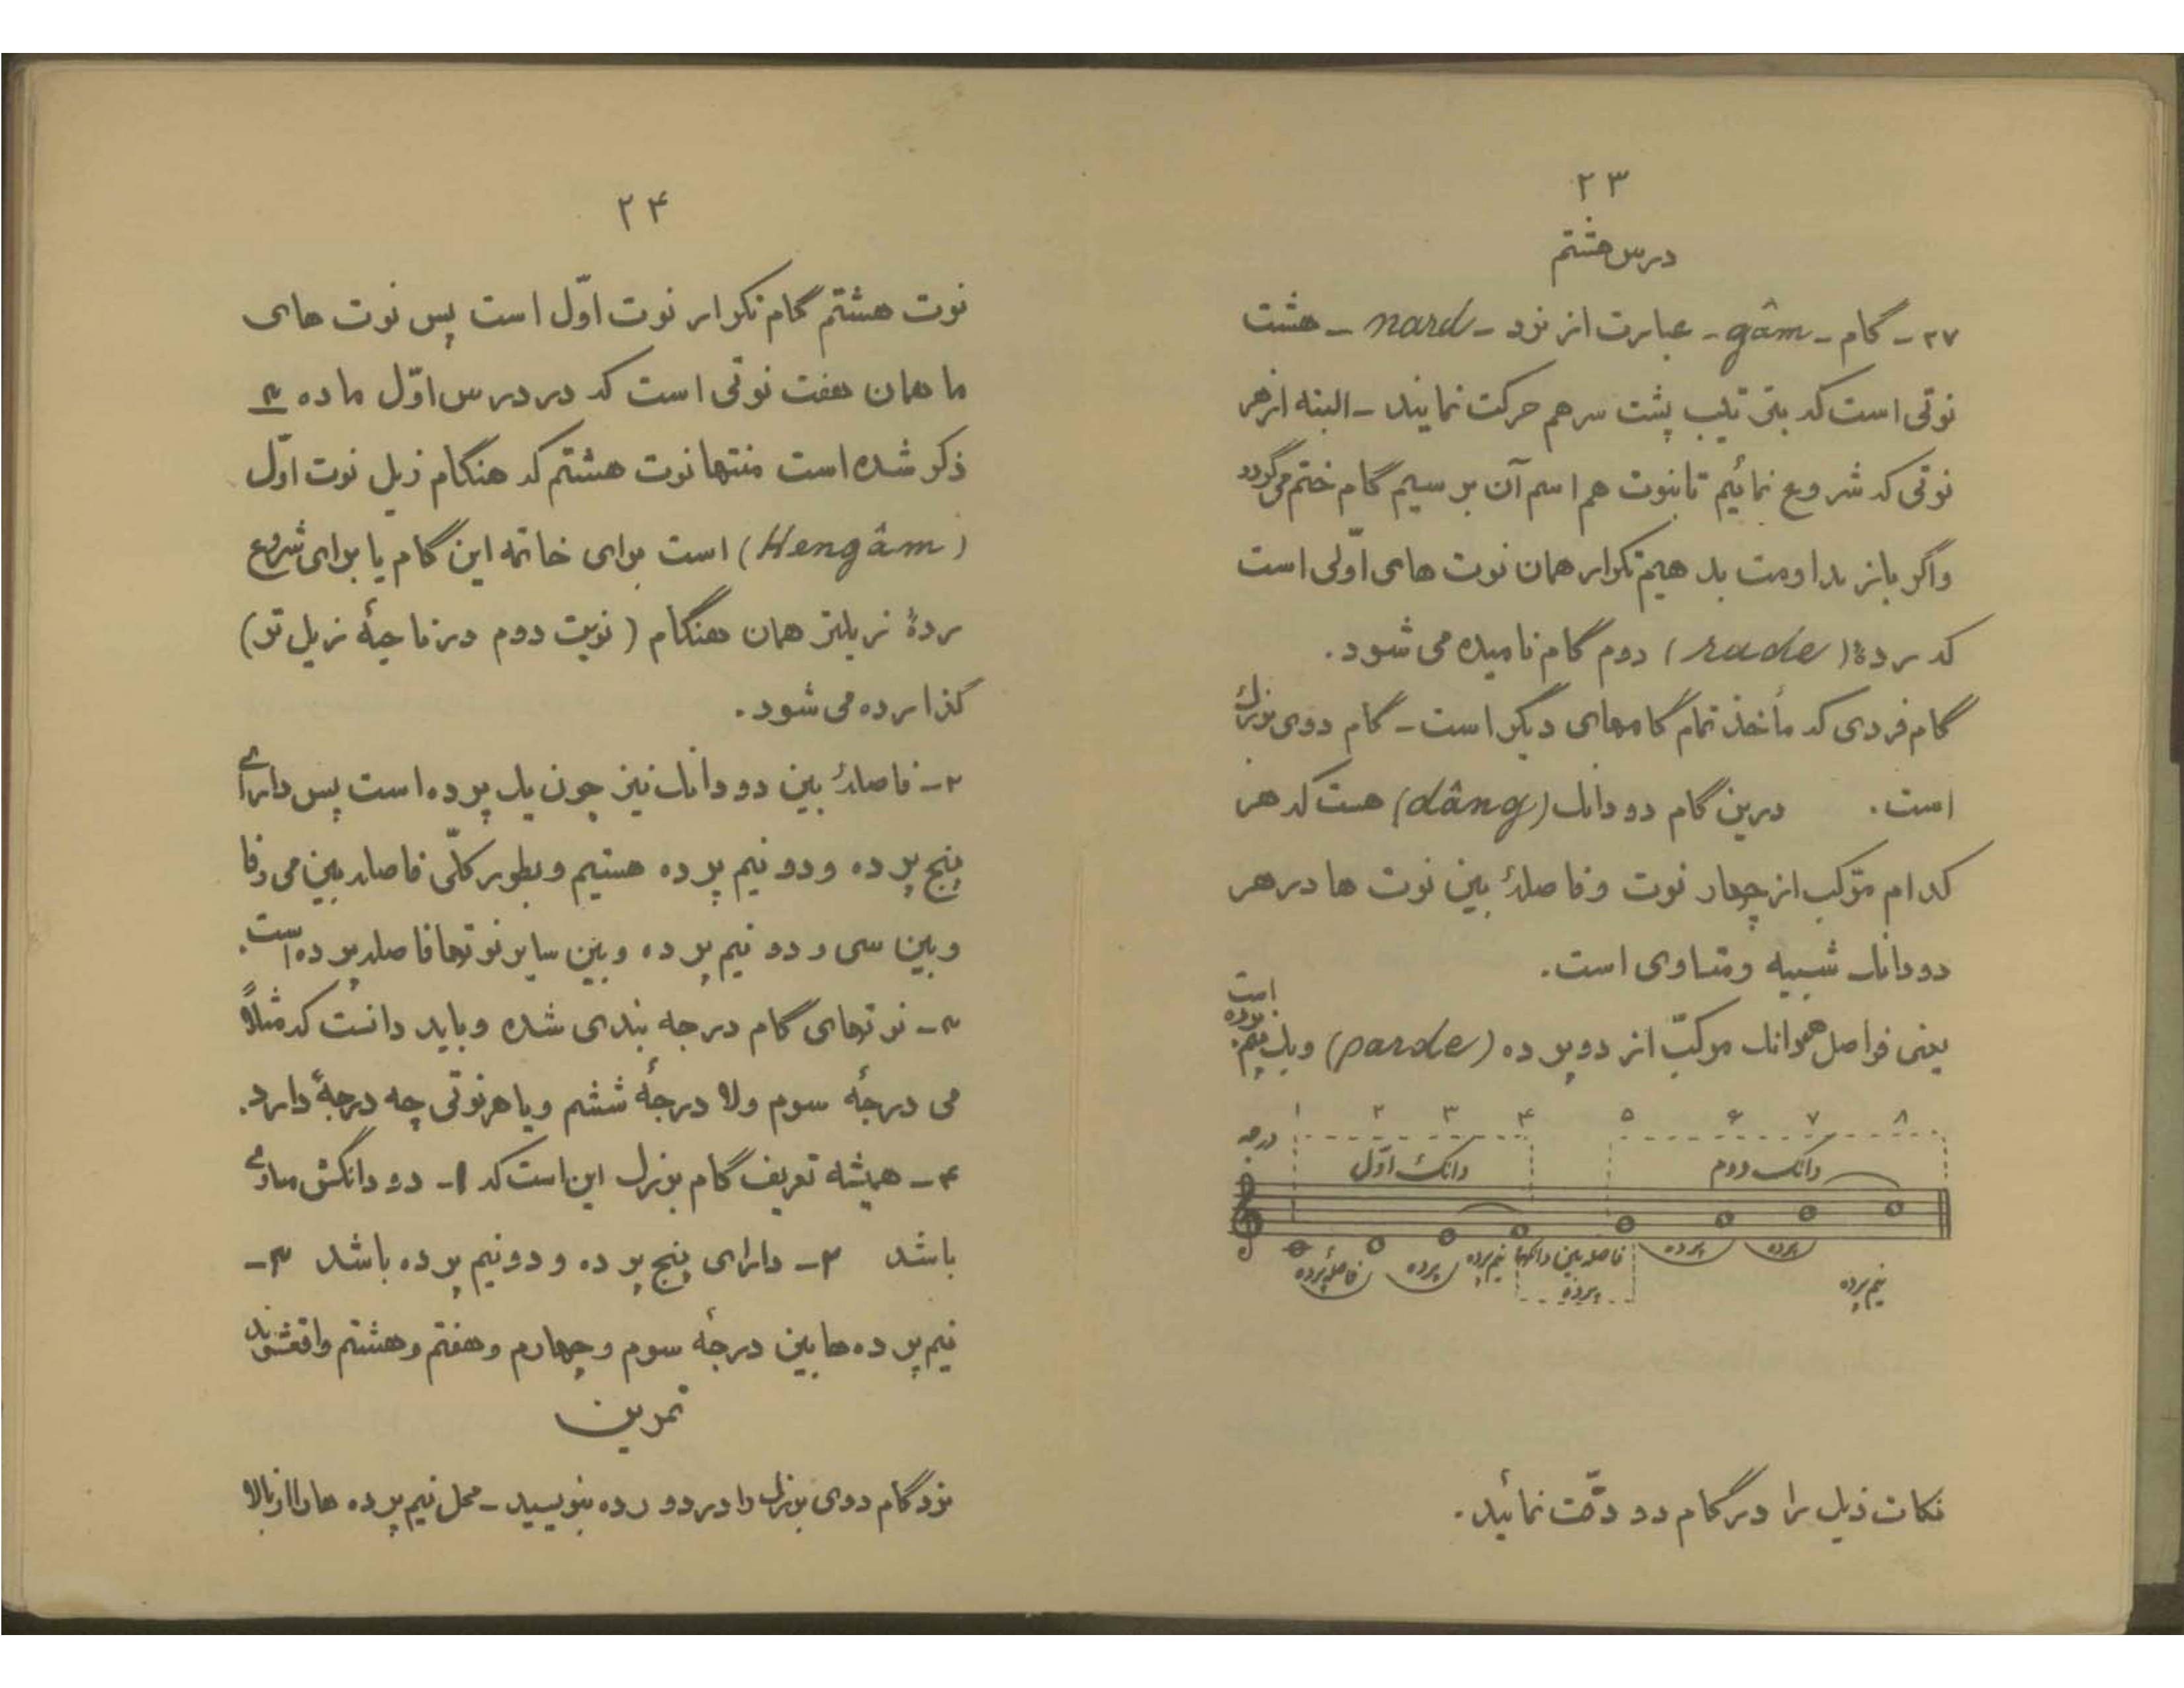 ۲۳
درس هشتم
۲۷ - گام - gâm - عبارت از نرد - nard - هشت
نوتی است که بترتیب پشت سر هم حرکت نمایند - البته از هر
نوتی که شروع نمائیم تا بنوت هم اسم آن برسیم گام ختم می‌گردد
و اگر باز مداومت بدهیم تکرار همان نوت های اوّلی است
که ردهٔ (rade) دوم گام نامیده می شود.
گام فردی که مأخذ تمام گامهای دیگر است - گام دوی بزرگ
است. درین گام دو دانک (dâng) هست که هر
کدام مرّکب از چهار نوت و فاصلهٔ بین نوت ها در هر
دو دانک شبیه و متساوی است.
یعنی فواصل هر دانک مرکبّ از دو پرده (parde) و یک نیم پرده است
درجه ۱ ۲ ۳ ۴ ۵ ۶ ۷ ۸
دانک اوّل دانک دوم
فاصلهٔ پرده پرده نیم پرده فاصله بین دانکها پرده پرده پرده نیم پرده
نکات ذیل را در گام دو دقّت نمائید.
۲۴
نوت هشتم گام تکرار نوت اوّل است پس نوت های
ما همان هفت نوتی است که در درس اوّل ماده ۳
ذکر شده است منتها نوت هشتم که هنگام زیل نوت اوّل
(Hengâm) است برای خاتمه این گام یا برای شروع
ردهٔ زیلتر همان هنگام (نوبت دوم در ناحیهٔ زیل تو)
گذارده می شود.
۲- فاصلهٔ بین دو دانک نیز چون یک پرده است پس دارای
پنج پرده و دو نیم پرده هستیم و بطور کلّی فاصله بین می و فا
و بین سی و دو نیم پرده و بین سایر نوتها فاصله پرده است.
۳- نوتهای گام درجه بندی شده و باید دانست که مثلاً
می درجهٔ سوم و لا درجهٔ ششم و یا هر نوتی چه درجهٔ دارد.
۴- همیشه تعریف گام بزرک این است که ۱- دو دانکش مساوی
باشد ۲- دارای پنج پرده و دو نیم پرده باشد ۳-
نیم پرده ها بین درجهٔ سوم و چهارم و هفتم و هشتم واقع شوند
تمرین
نرد گام دوی بزرک را در دو رده بنویسید - محل نیم پرده ها را از بالا